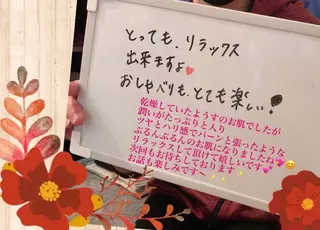 とっても、リラックス
出来ますよ♥
おしゃべりも、とても楽しい!
乾燥していたようすのお肌でしたが
潤いがたっぷりと入り
ツヤとハリ感でパーンと張ったような
ぷるんぷるんのお肌になりましたね💕😊
リラックスして頂けて嬉しいです💕
次回もお待ちしております
お話も楽しみです〜✨